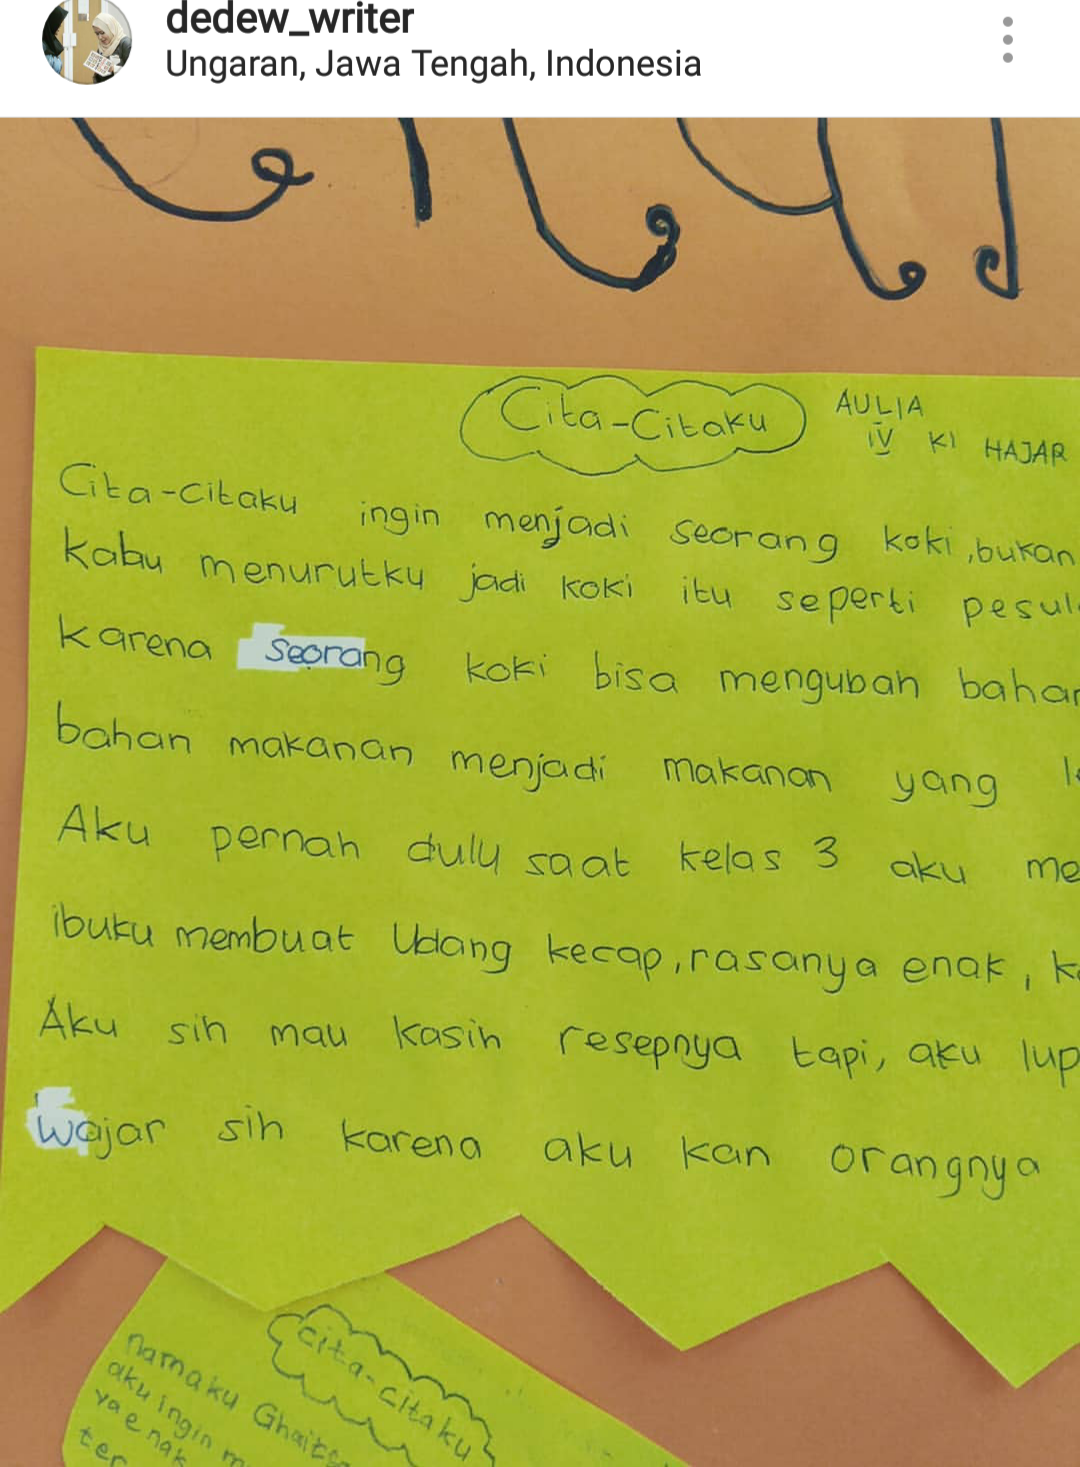 dedew_writer
Ungaran, Jawa Tengah, Indonesia
Cita-Citaku
AULIA
IV KI HAJAR
Cita-citaku ingin menjadi seorang koki, bukan
kabu menurutku jadi koki itu seperti pesul
karena seorang koki bisa mengubah bahan
bahan makanan menjadi makanan yang l
Aku pernah dulu saat kelas 3 aku me
ibuku membuat Udang kecap, rasanya enak, k
Aku sih mau kasih resepnya tapi, aku lup
wajar sih karena aku kan orangnya
Cita-citaku
Namaku Ghaits
aku ingin m
ya enak
ter